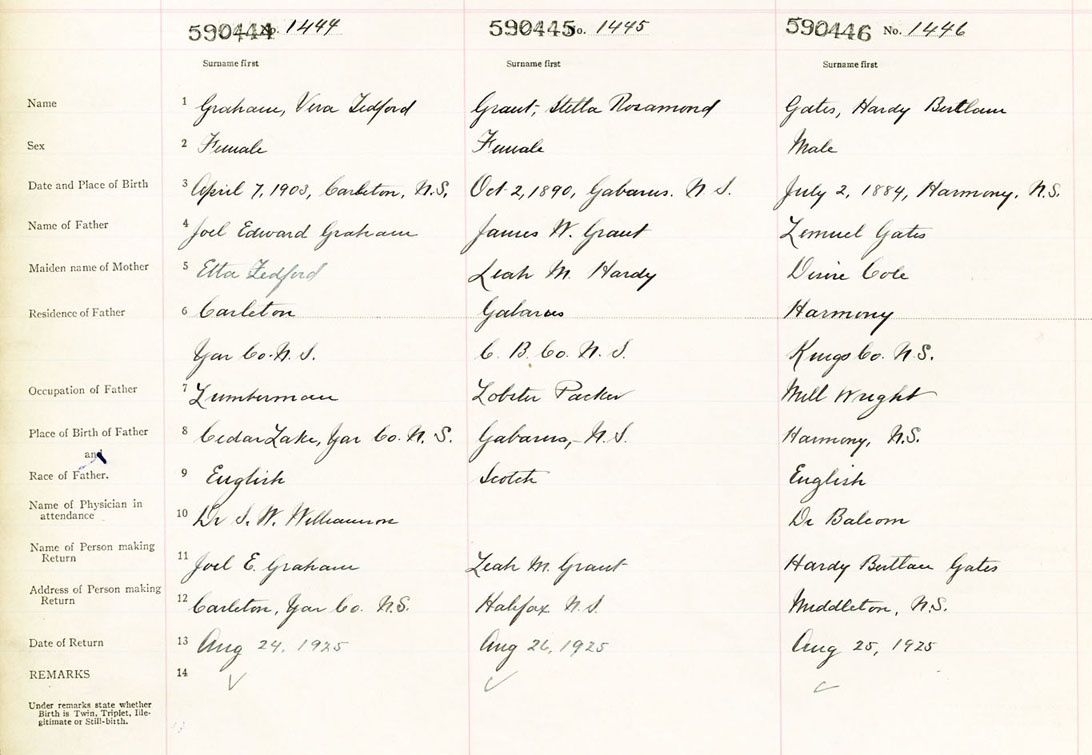 590444 No. 1444 590445 No. 1445 590446 No. 1446
Surname first Surname first Surname first
Name 1 Graham, Vera Tedford Grant, Stella Rosamond Gates, Hardy
Sex 2 Female Female Male
Date and Place of Birth 3 April 7, 1903, Carleton, N.S. Oct 2, 1890, Gabarus. N S. July 2, 1884, Harmony, N.S.
Name of Father 4 Joel Edward Graham James W. Grant Lemuel Gates
Maiden name of Mother 5 Etta Tedford Leah M. Hardy Desire Cole
Residence of Father 6 Carleton Gabarus Harmony
Yar Co. N. S. C. B. Co. N. S. Kings Co. N.S.
Occupation of Father 7 Lumberman Lobster Packer Mill Wright
Place of Birth of Father 8 Cedar Lake, Yar Co. N. S. Gabarus, N.S. Harmony, N.S.
and
Race of Father. 9 English Scotch English
Name of Physician in
attendance 10 Dr S. W. Williamson Dr Balcom
Name of Person making
Return 11 Joel E. Graham Leah M. Grant Hardy Gates
Address of Person making
Return 12 Carleton, Yar Co. N.S. Halifax N.S. Middleton, N.S.
Date of Return 13 Aug 24, 1925 Aug 26, 1925 Aug 25, 1925
REMARKS 14
Under remarks state whether
Birth is Twin, Triplet, Ille-
gitimate or Still-birth.